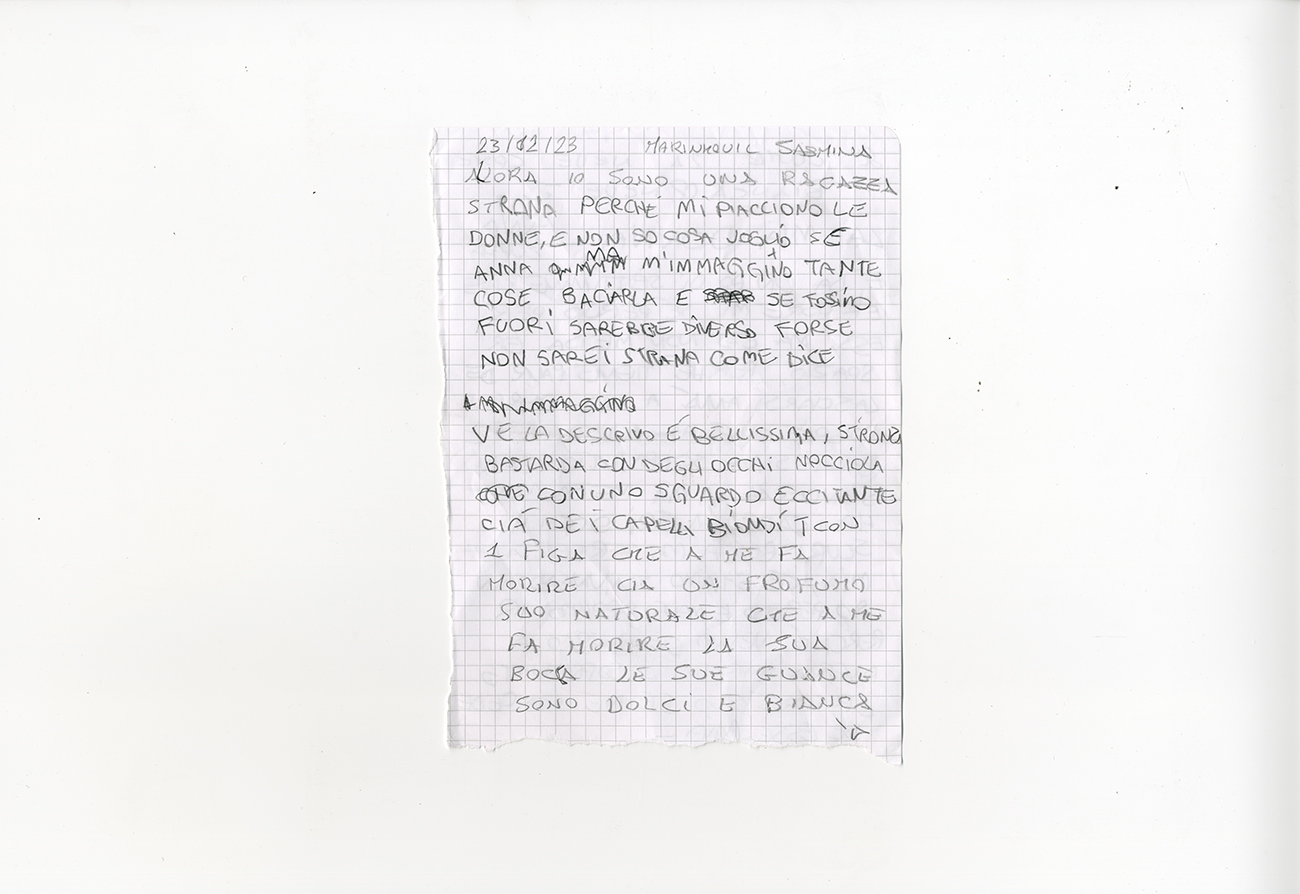 23/12/23 MARINKOVIC SABMINA
ALORA IO SONO UNA RAGAZZA
STRANA PERCHÉ MI PIACCIONO LE
DONNE, E NON SO COSA VOGLIO SE
ANNA MA M'IMMAGGINO TANTE
COSE BACIARLA E SE FOSIMO
FUORI SAREBBE DIVERSO FORSE
NON SAREI STRANA COME DICE
VE LA DESCRIVO É BELLISSIMA, STRONZ
BASTARDA CON DEGLI OCCHI NOCCIOLA
CON UNO SGUARDO ECCITANTE
CIÀ DEI CAPELLI BIONDI CON
1 FIGA CHE A ME FA
MORIRE CIA UN PROFUMO
SUO NATURALE CHE A ME
FA MORIRE LA SUA
BOCCA LE SUE GUANCE
SONO DOLCI E BIANCA